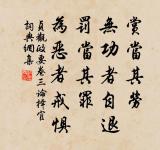 賞當其勞
無功者自退
罰當其罪
為惡者戒懼
貞觀政要卷三論擇官
詞典網集